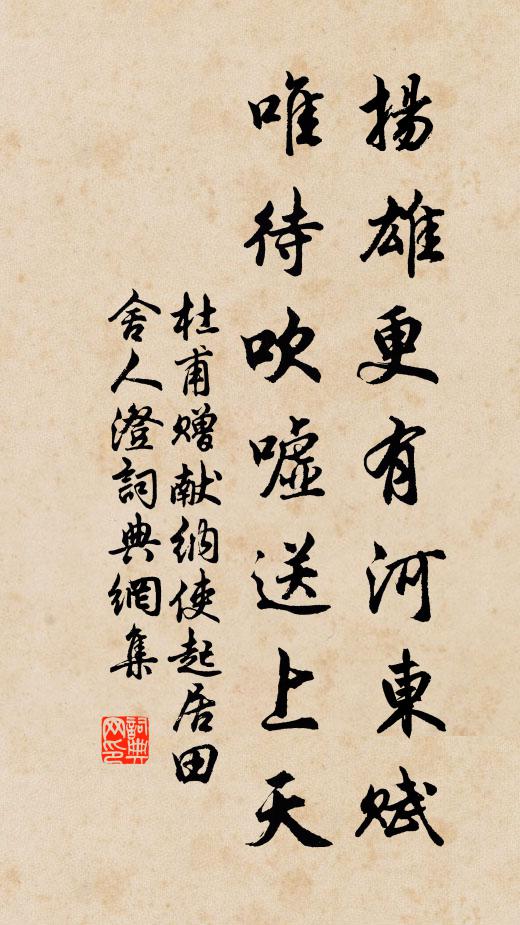 揚雄更有河東賦
唯待吹嘘送上天
杜甫贈献納使起居田
舍人澄詞典網集
詞典网印